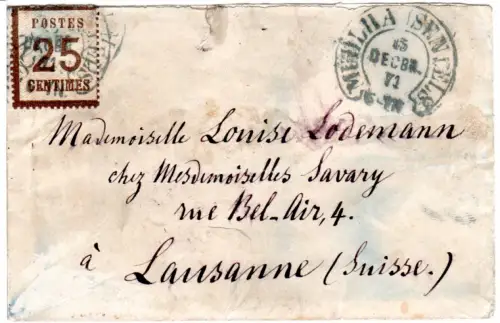 POSTES
25
CENTIMES
MÜLHAUSEN I. ELS.
DECBR.
71
Mademoiselle Louise Lodemann
chez Mesdemoiselles Savary
rue Bel-Air, 4.
à Lausanne (Suisse.)